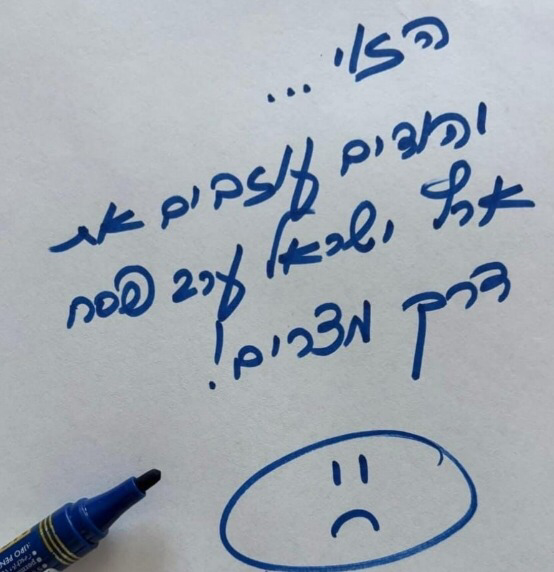 הזוי ...
יהודים עוזבים את
ארץ ישראל ערב פסח
דרך מצרים!